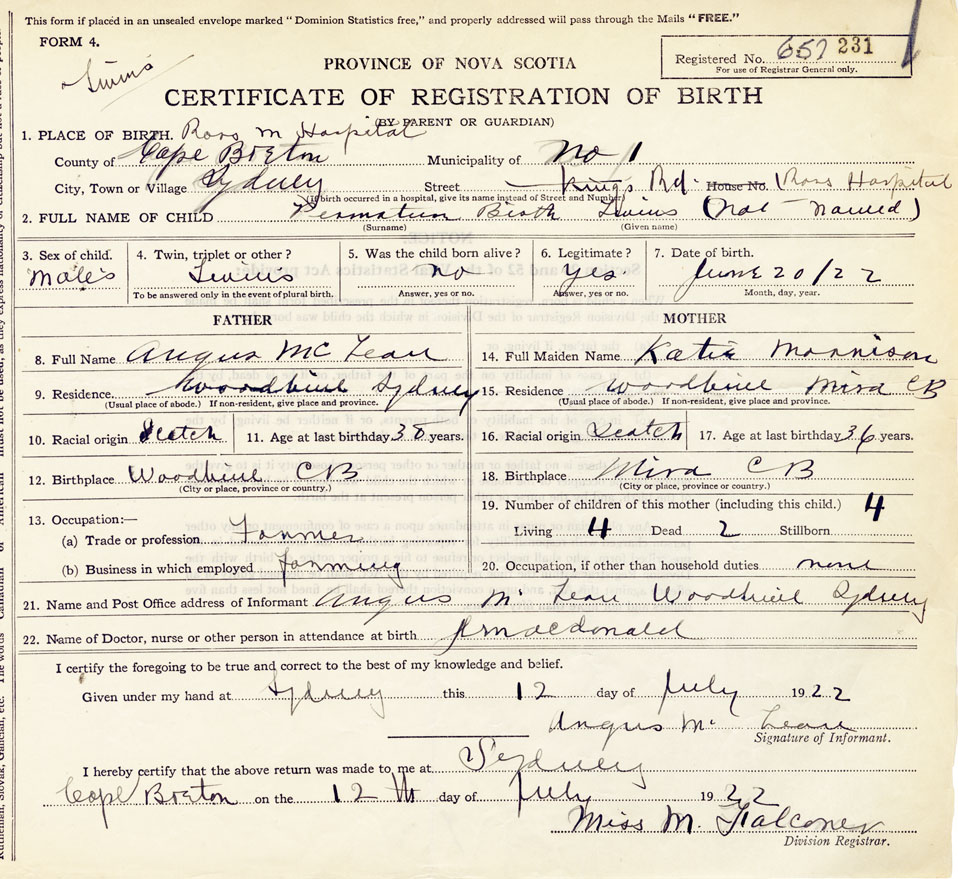 This form if placed in an unsealed envelope marked "Dominion Statistics free," and properly addressed will pass through the Mails "FREE."
FORM 4.
Registered No. 657 231
For use of Registrar General only.
Twins
PROVINCE OF NOVA SCOTIA
CERTIFICATE OF REGISTRATION OF BIRTH
(BY PARENT OR GUARDIAN)
1. PLACE OF BIRTH. Ross M Hospital
County of Cape Breton Municipality of No 1
City, Town or Village Sydney Street Kings Rd. House No. Ross Hospital
(If birth occurred in a hospital, give its name instead of Street and Number)
2. FULL NAME OF CHILD Premature Birth Twins (Not Named)
(Surname) (Given name)
3. Sex of child. Males
4. Twin, triplet or other? Twins
To be answered only in the event of plural birth.
5. Was the child born alive? No
Answer, yes or no.
6. Legitimate? Yes
Answer, yes or no.
7. Date of birth. June 20/22
Month, day, year.
FATHER
8. Full Name Angus McLean
9. Residence Woodbine Sydney
(Usual place of abode.) If non-resident, give place and province.
10. Racial origin Scotch 11. Age at last birthday 38 years.
12. Birthplace Woodbine CB
(City or place, province or country.)
13. Occupation:—
(a) Trade or profession Farmer
(b) Business in which employed farming
MOTHER
14. Full Maiden Name Katie Morrison
15. Residence Woodbine Mira CB
(Usual place of abode.) If non-resident, give place and province.
16. Racial origin Scotch 17. Age at last birthday 36 years.
18. Birthplace Mira CB
(City or place, province or country.)
19. Number of children of this mother (including this child.) 4
Living 4 Dead 2 Stillborn
20. Occupation, if other than household duties none
21. Name and Post Office address of Informant Angus Mc Lean Woodbine Sydney
22. Name of Doctor, nurse or other person in attendance at birth Macdonald
I certify the foregoing to be true and correct to the best of my knowledge and belief.
Given under my hand at Sydney this 12 day of July 1922
Angus Mc Lean
Signature of Informant.
I hereby certify that the above return was made to me at Sydney
Cape Breton on the 12th day of July 1922
Miss M. Falconer
Division Registrar.